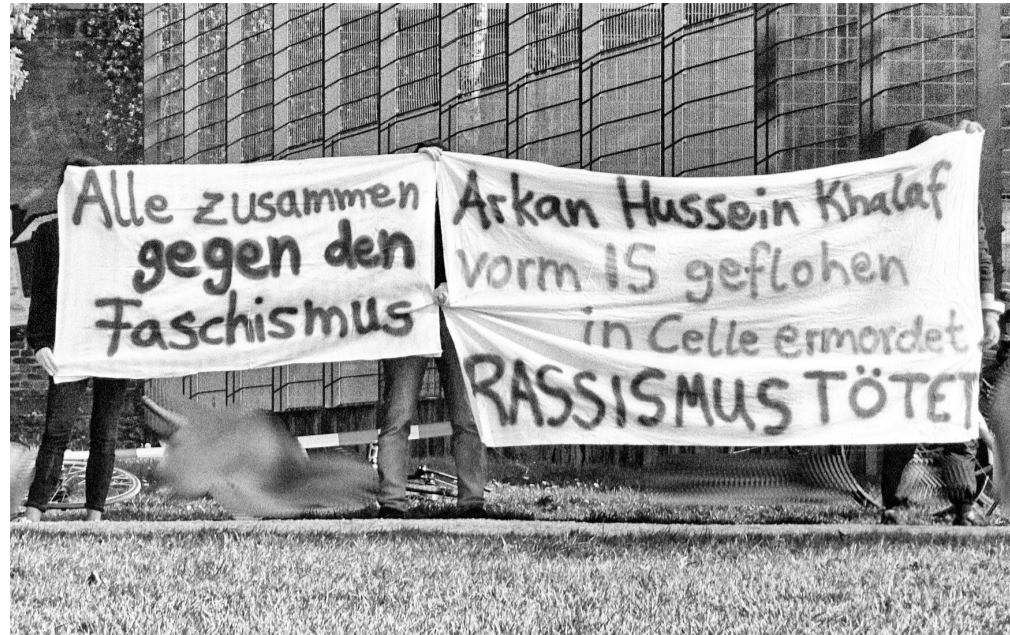 Alle zusammen
gegen den
Faschismus
Arkan Hussein Khalaf
vorm IS geflohen
in Celle ermordet
RASSISMUS TÖTET